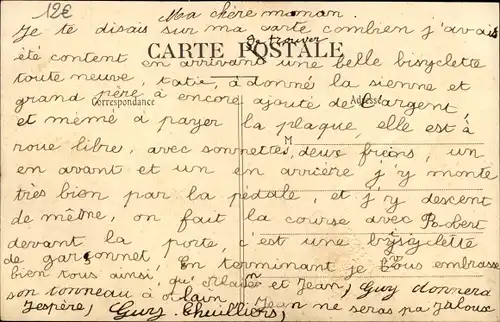 12€
Ma chère maman.
Je te disais sur ma carte combien j'avais
été content en arrivant de trouver une belle bisyclette
CARTE POSTALE
toute neuve, tatie, à donné la sienne et
grand père à encore ajouté de l'argent,
Correspondance Adresse
et même à payer la plaque, elle est à
roue libre, avec sonnettes, deux freins, un
M
en avant et un en arrière j'y monte
très bien par la pédale, et j'y descent
de même, on fait la course avec Robert
devant la porte, c'est une bysiclette
de garçonnet, En terminant je vous embrasse
bien tous ainsi, qu' et Jean, Guy donnera
son tonneau à Alain, Jean ne seras pa jaloux
J'espère, Guy.